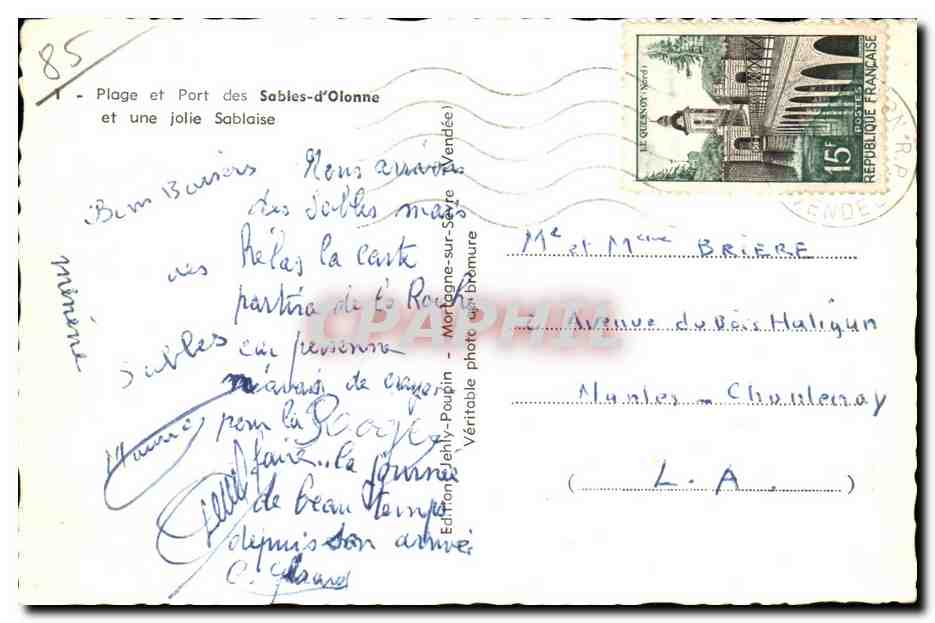 85
1 - Plage et Port des Sables-d'Olonne
et une jolie Sablaise
Bons Baisers
des
Sables
mémène
Nous arrivons
des Sables mais
Hélas la carte
partira de la Roche
car personne
n'avais de crayon
pour la
faire.. la journée
de beau temps
depuis son arrivée
Maurice
Edition Jehly-Poupin - Mortagne-sur-Sèvre (Vendée)
Véritable photo au bromure
LE QUESNOY (Nord)
15F
POSTES
RÉPUBLIQUE FRANÇAISE
VENDEE
CPAPHIL
Me et Mme BRIERE
Avenue du Bois Haligan
Nantes - Chantenay
(L. A.)